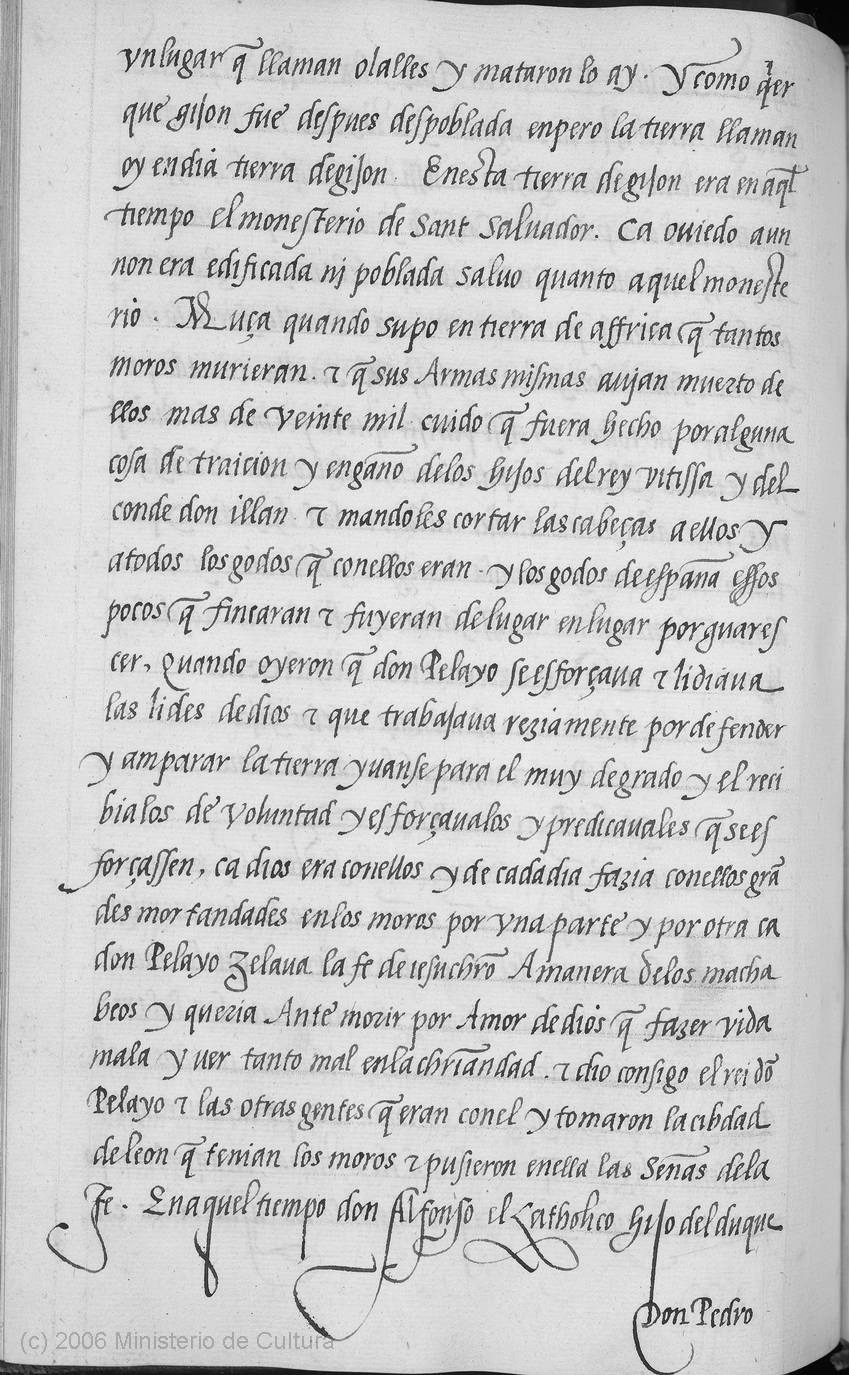 vn lugar q̃ llaman olalles y mataron lo ay. y como q̃er
que gijon fue despues despoblada enpero la tierra llaman
oy en dia tierra de gijon. En esta tierra de gijon era en aq̃l
tiempo el monesterio de Sant Saluador. Ca ouiedo aun
non era edificada nj poblada saluo quanto aquel moneste
rio. Muça quando supo en tierra de affrica q̃ tantos
moros murieran. τ q̃ sus Armas mismas aujan muerto de
llos mas de veinte mil cuido q̃ fuera hecho por alguna
cosa de traicion y engaño de los hijos del rey vitissa y del
conde don illan τ mandoles cortar las cabeças a ellos y
a todos los godos q̃ con ellos eran. y los godos de españa essos
pocos q̃ fincaran τ fuyeran de lugar en lugar por guares
cer, quando oyeron q̃ don Pelayo se esforçaua τ lidiaua
las lides de dios τ que trabajaua reziamente por defender
y amparar la tierra yuanse para el muy de grado y el reci
bialos de voluntad y esforçaualos y predicauales q̃ se es
forçassen, ca dios era con ellos y de cada dia fazia con ellos grã
des mortandades en los moros por vna parte y por otra ca
don Pelayo zelaua la fe de iesuchr̃o A manera de los macha
beos y queria Ante morir por Amor de dios q̃ fazer vida
mala y ver tanto mal en la chr̃iandad. τ dio consigo el rei dõ
Pelayo τ las otras gentes q̃ eran con el y tomaron la cibdad
de leon q̃ tenian los moros τ pusieron en ella las Señas de la
Fe. En aquel tiempo don Alfonso el Catholico hijo del duque
Don Pedro
(c) 2006 Ministerio de Cultura